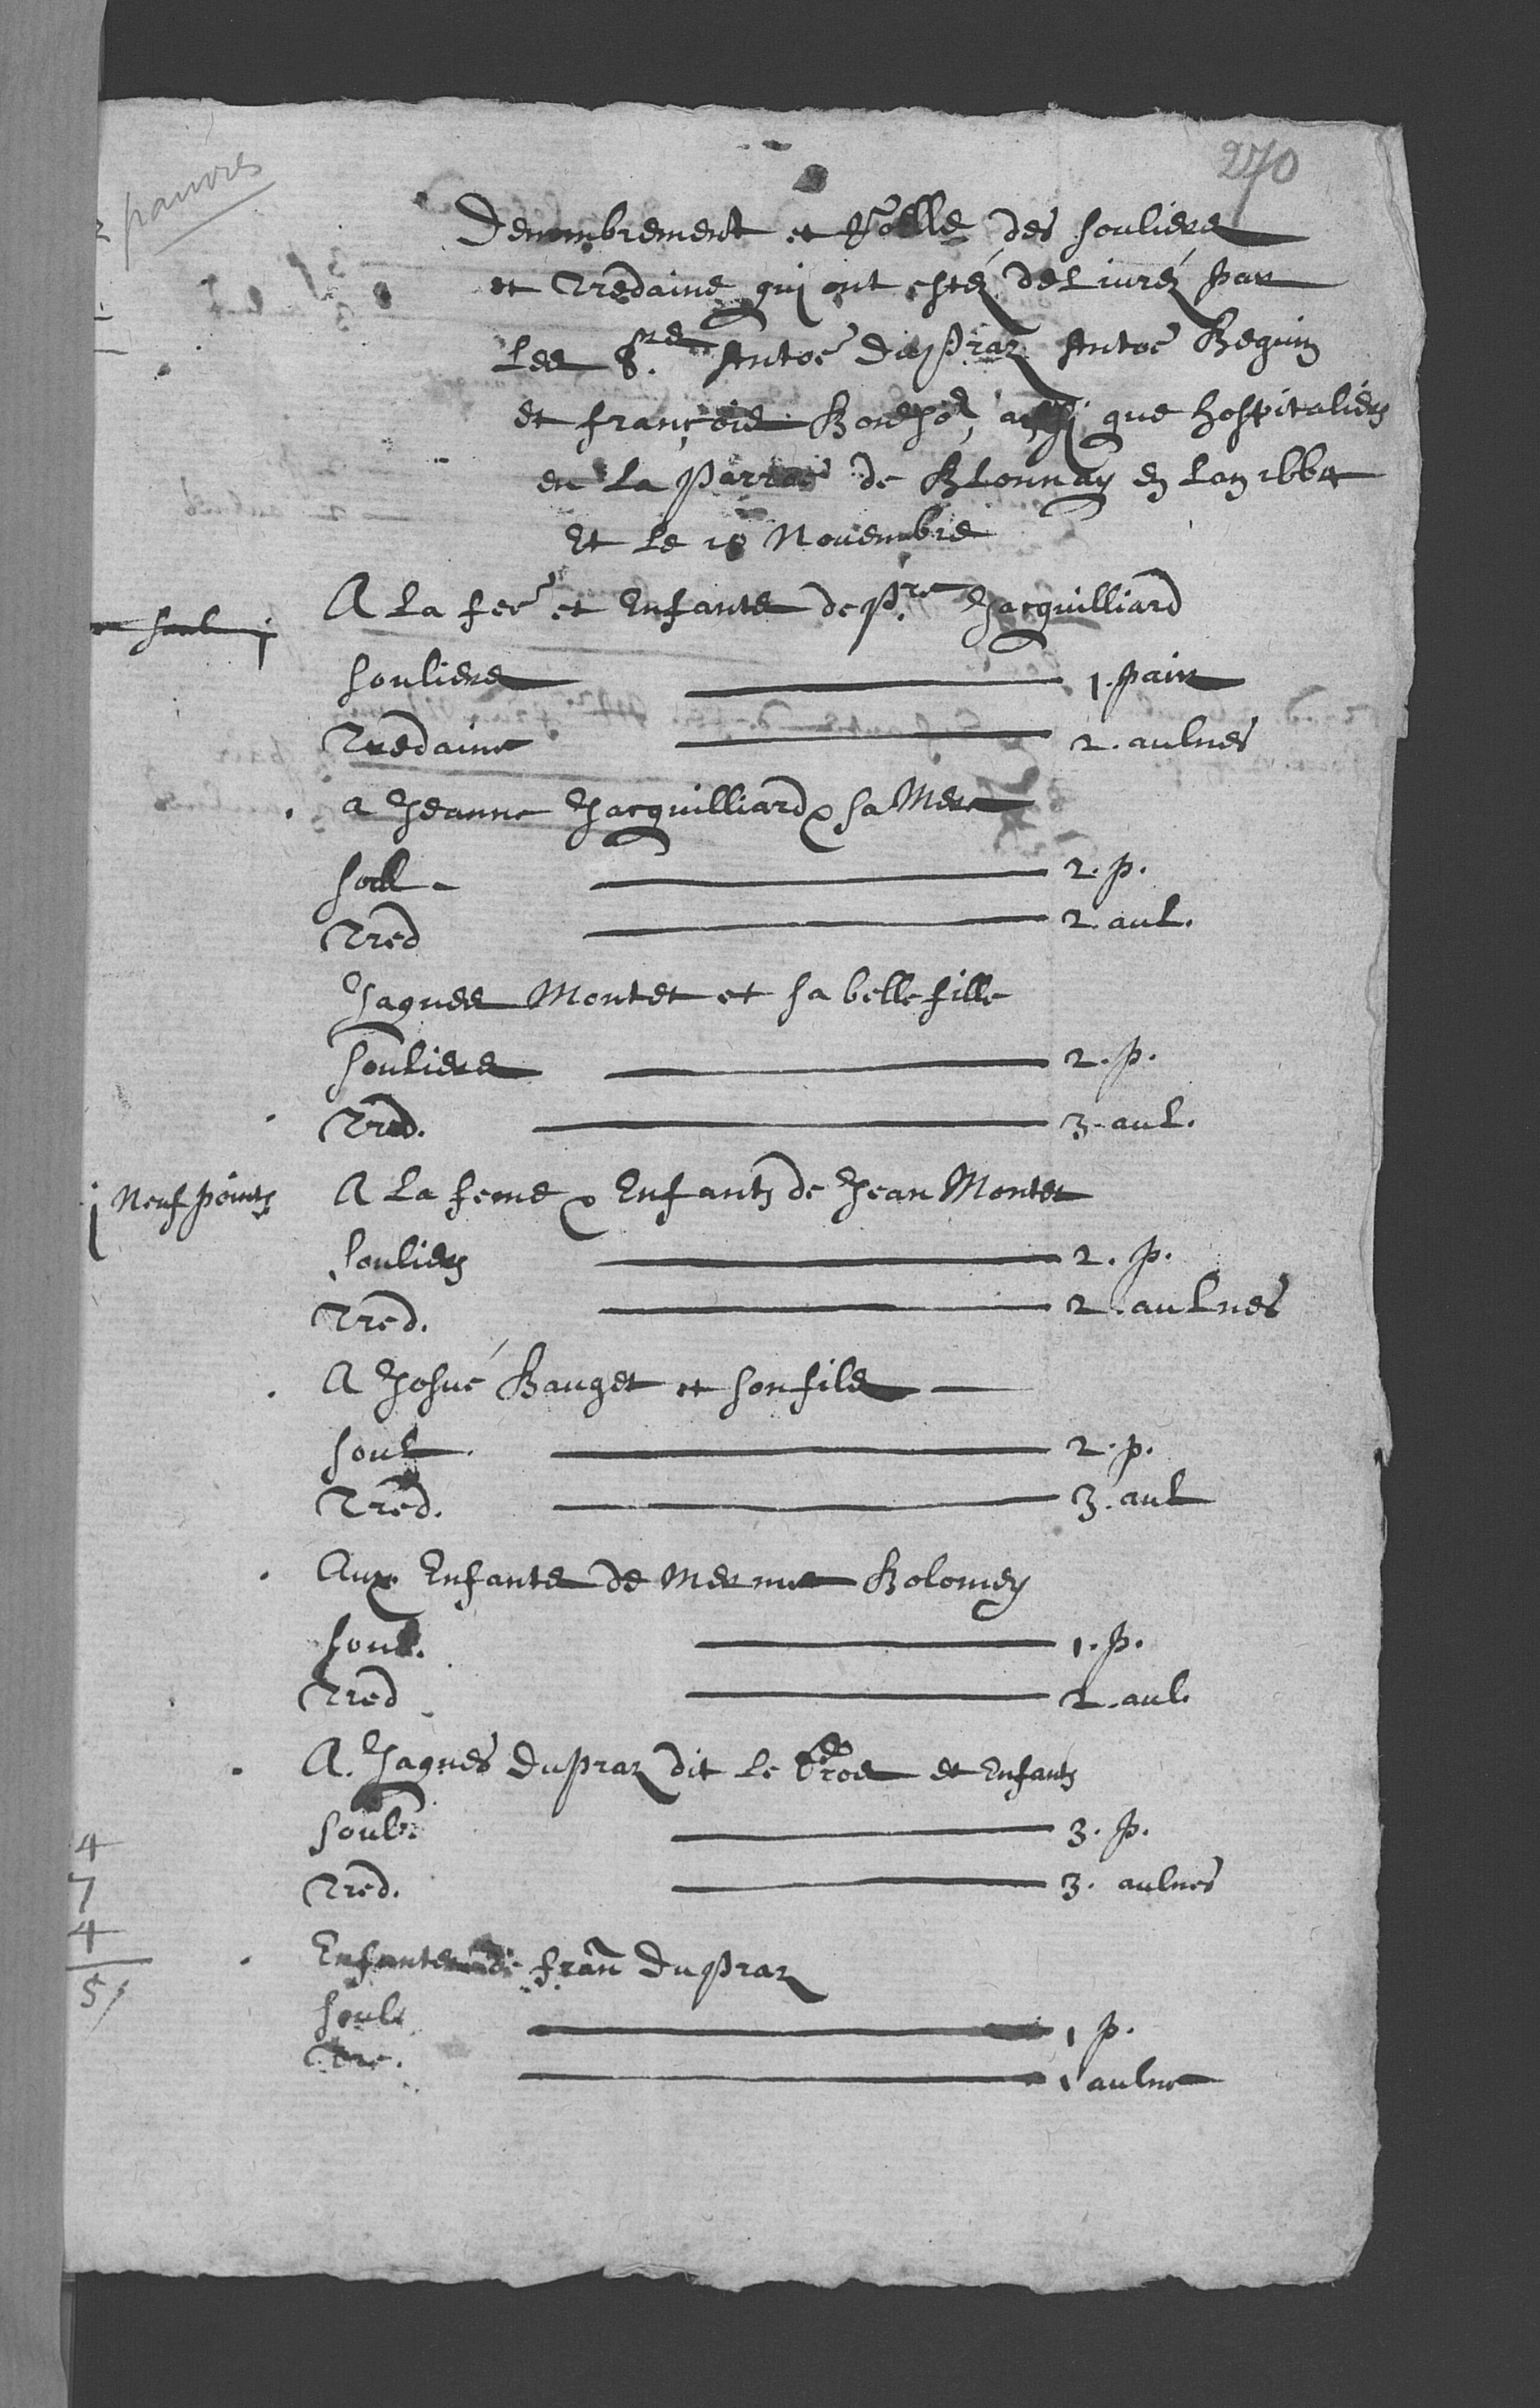 270
pauvres
Denombrement et Rolle des souliers
et Tredaine qui ont estéz deLiuréz par
Les S.rs Antoe DuPraz Antoe Beguin
et françois aussi que hospitaliers
en La Parroe de BLonnay en Lan 1664
Et Le 18 Novembre
A La fee et Enfants de P.re Jacquilliard
soul
souliers 1. pair
Tredaine 2. aulnes
a Jeanne Jacquilliard & sa Mere
soul 2. p.
Tred 2. aul.
Jaques Montet et sa belle fille
souliers 2. p.
Tred. 3. aul.
Neuf points
A La feme & Enfants de Jean Montet
souliers 2. p.
Tred. 2. auLnes
A Josué Bauget et son fils
soul 2. p.
Tred. 3. aul
Aux Enfants de Mermet Bolomey
soul. 1. p.
Tred 2. aul.
A. Jaques DuPraz dit Le et Enfants
soul. 3. p.
Tred. 3. aulnes
Enfants de fran DuPraz
soul 1 p.
Tre. 1 aulne
4
7
4
5